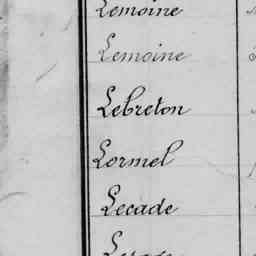 Lemoine
Lemoine
Lebreton
Lormel
Lecade